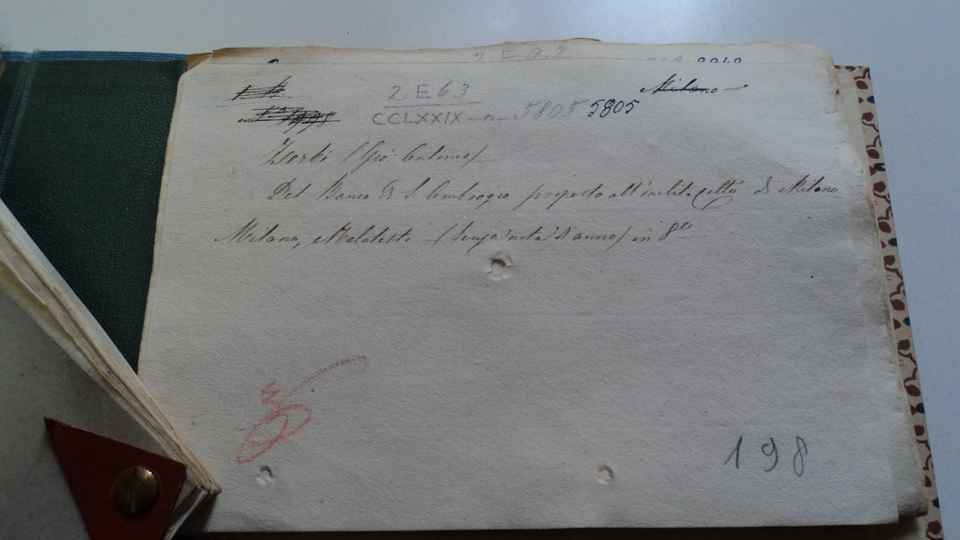 2 E 6.3
Milano
2 E 63
CCLXXIX - n - 5805 5805
(Gio
Del Banco di S. Ambrogio proposto all'inclita città di Milano
Milano, Malatesta (senza nota d'anno) in 8°
198